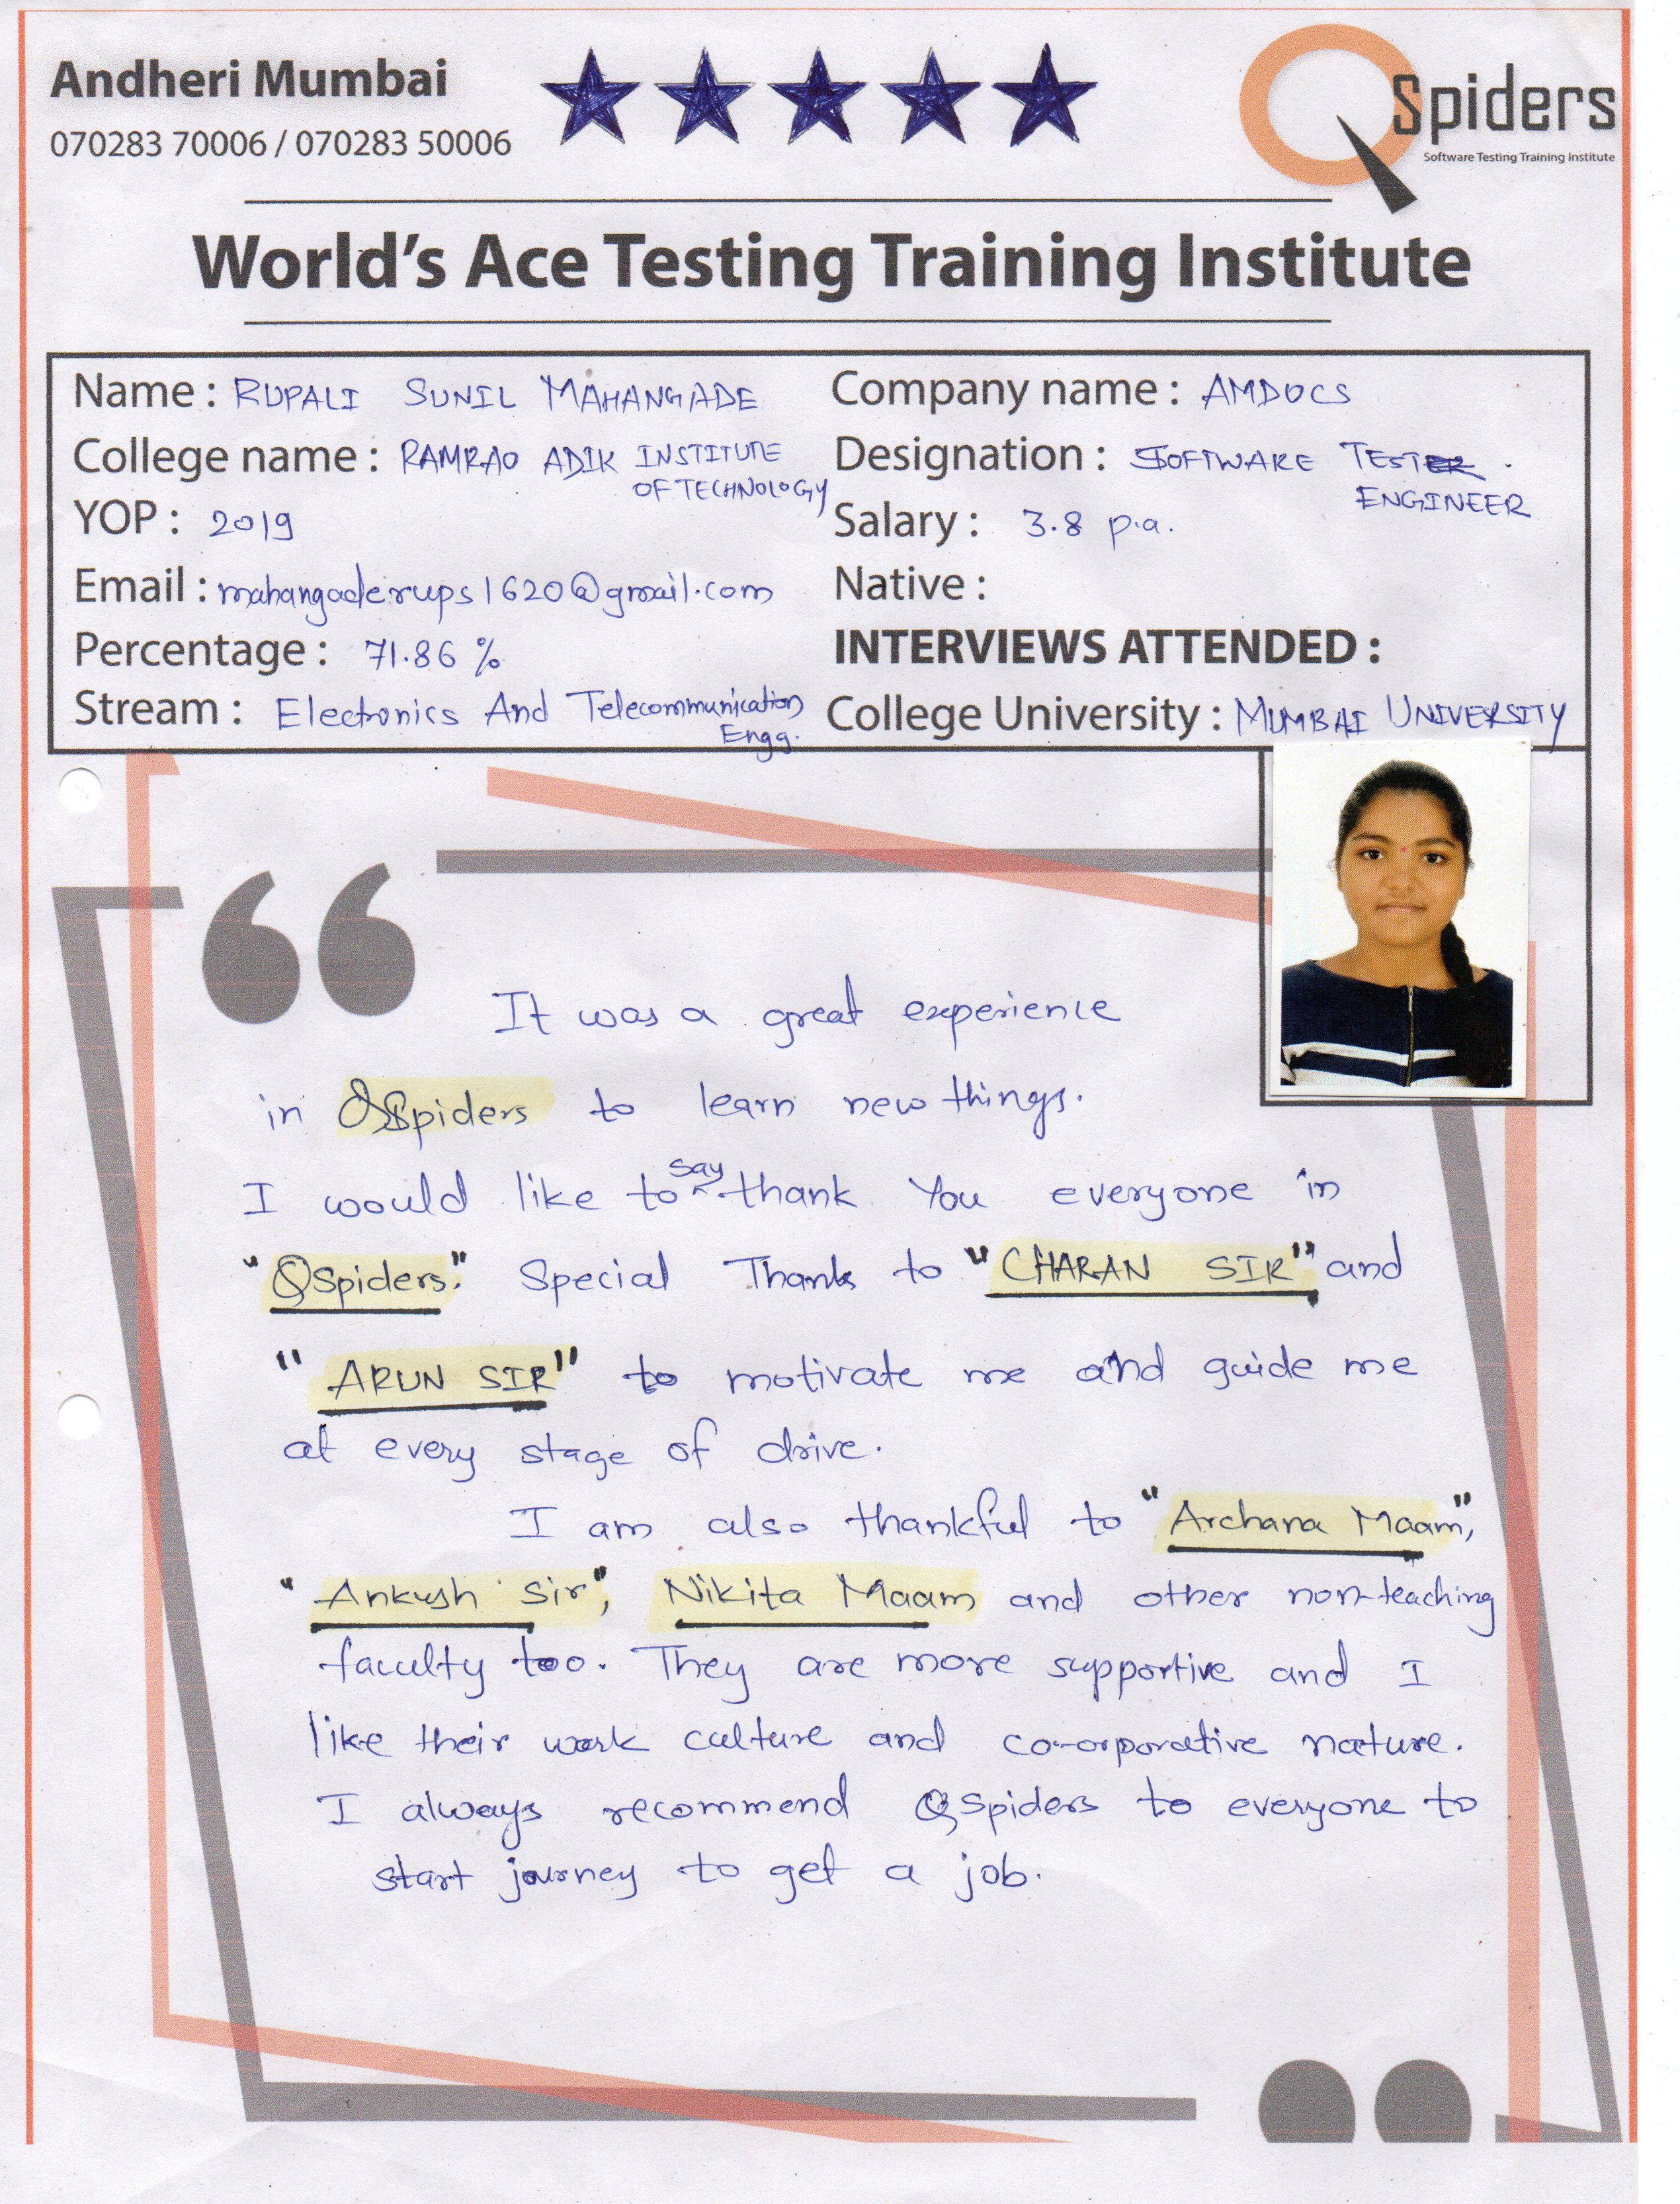 Andheri Mumbai
070283 70006 / 070283 50006
QSpiders
Software Testing Training Institute
World's Ace Testing Training Institute
Name : RUPALI SUNIL MAHANGADE
College name : RAMRAO ADIK INSTITUTE
OF TECHNOLOGY
YOP : 2019
Email : mahangaderups1620@gmail.com
Percentage : 71.86 %
Stream : Electronics And Telecommunication
Engg.
Company name : AMDOCS
Designation : SOFTWARE TEST
ENGINEER
Salary : 3.8 p.a.
Native :
INTERVIEWS ATTENDED :
College University : MUMBAI UNIVERSITY
It was a great experience
in QSpiders to learn new things.
I would like to say thank You everyone in
"QSpiders." Special Thanks to "CHARAN SIR" and
"ARUN SIR" to motivate me and guide me
at every stage of drive.
I am also thankful to "Archana Maam",
"Ankush Sir", Nikita Maam and other non-teaching
faculty too. They are more supportive and I
like their work culture and co-orporative nature.
I always recommend QSpiders to everyone to
start journey to get a job.